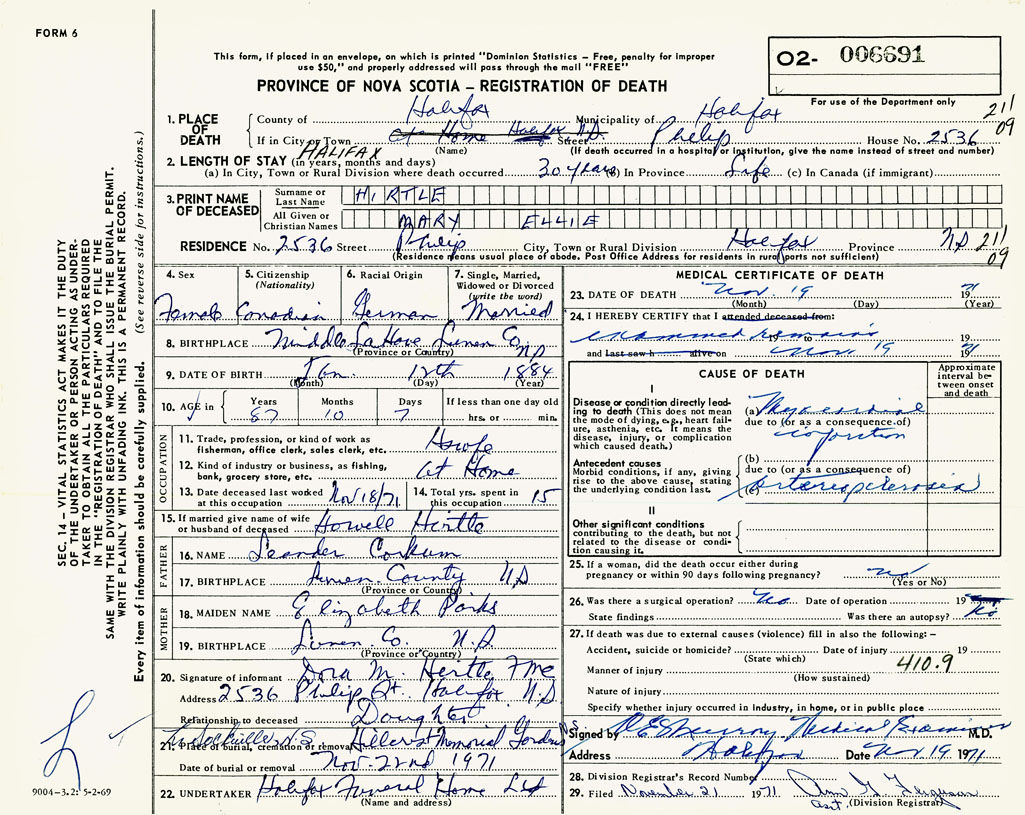 FORM 6
This form, if placed in an envelope, on which is printed "Dominion Statistics – Free, penalty for improper
use $50," and properly addressed will pass through the mail "FREE"
O2- 006691
PROVINCE OF NOVA SCOTIA – REGISTRATION OF DEATH
For use of the Department only
211
09
1. PLACE OF DEATH
County of Halifax Municipality of Halifax
If in City or Town at Home Halifax N.S. Street Philip House No. 2536
HALIFAX (Name) (If death occurred in a hospital or institution, give the name instead of street and number)
2. LENGTH OF STAY (in years, months and days)
(a) In City, Town or Rural Division where death occurred 30 years (b) In Province Life (c) In Canada (if immigrant)
3. PRINT NAME OF DECEASED
Surname or Last Name HIRTLE
All Given or Christian Names MARY ELLIE
RESIDENCE No. 2536 Street Philip City, Town or Rural Division Halifax Province N.S. 211
09
(Residence means usual place of abode. Post Office Address for residents in rural ports not sufficient)
4. Sex
Female
5. Citizenship
(Nationality)
Canadian
6. Racial Origin
German
7. Single, Married,
Widowed or Divorced
(write the word)
Married
8. BIRTHPLACE Middle LaHave Lunen Co. N.S.
(Province or Country)
9. DATE OF BIRTH Jan. 12th 1884
(Month) (Day) (Year)
10. AGE in Years Months Days If less than one day old
87 10 7 hrs. or min.
OCCUPATION
11. Trade, profession, or kind of work as
fisherman, office clerk, sales clerk, etc. Hswfe
12. Kind of industry or business, as fishing,
bank, grocery store, etc. At Home
13. Date deceased last worked
at this occupation Nov 18/71
14. Total yrs. spent in
this occupation 15
15. If married give name of wife
or husband of deceased Howell Hirtle
FATHER
16. NAME Leander Corkum
17. BIRTHPLACE Lunen. County N.S.
(Province or Country)
MOTHER
18. MAIDEN NAME Elizabeth Parks
19. BIRTHPLACE Lunen Co. N.S.
(Province or Country)
20. Signature of informant Dora M. Hirtle
Address 2536 Philip St. Halifax N.S.
Relationship to deceased Daughter
Sackville N.S.
21. Place of burial, cremation or removal Memorial Gardens
Date of burial or removal Nov. 22nd 1971
22. UNDERTAKER Halifax Funeral Home Ltd
(Name and address)
MEDICAL CERTIFICATE OF DEATH
23. DATE OF DEATH Nov. 19 1971
(Month) (Day) (Year)
24. I HEREBY CERTIFY that I attended deceased from:
examined remains 19 19
and Last saw h alive on Nov 19 1971
CAUSE OF DEATH
Approximate
interval be-
tween onset
and death
I
Disease or condition directly lead-
ing to death (This does not mean
the mode of dying, e.g., heart fail-
ure, asthenia, etc. It means the
disease, injury, or complication
which caused death.)
(a) Myocardial
due to (or as a consequence of)
Antecedent causes
Morbid conditions, if any, giving
rise to the above cause, stating
the underlying condition last.
(b)
due to (or as a consequence of)
(c) arteriosclerosis
II
Other significant conditions
contributing to the death, but not
related to the disease or condi-
tion causing it.
25. If a woman, did the death occur either during
pregnancy or within 90 days following pregnancy? no
(Yes or No)
26. Was there a surgical operation? no Date of operation 19
State findings Was there an autopsy? no
27. If death was due to external causes (violence) fill in also the following: –
Accident, suicide or homicide? Date of injury 19
(State which)
410.9
Manner of injury
(How sustained)
Nature of injury
Specify whether injury occurred in industry, in home, or in public place
Signed by Murray Medical Examiner M.D.
Address Halifax Date Nov. 19 1971
28. Division Registrar's Record Number
29. Filed November 21 1971 Ferguson
asst. (Division Registrar)
SEC. 14 – VITAL STATISTICS ACT MAKES IT THE DUTY
OF THE UNDERTAKER OR PERSON ACTING AS UNDER-
TAKER TO OBTAIN ALL THE PARTICULARS REQUIRED
IN THE "REGISTRATION OF DEATH" AND TO FILE THE
SAME WITH THE DIVISION REGISTRAR WHO SHALL ISSUE THE BURIAL PERMIT.
WRITE PLAINLY WITH UNFADING INK. THIS IS A PERMANENT RECORD.
Every item of information should be carefully supplied. (See reverse side for instructions.)
9004-3.2: 5-2-69